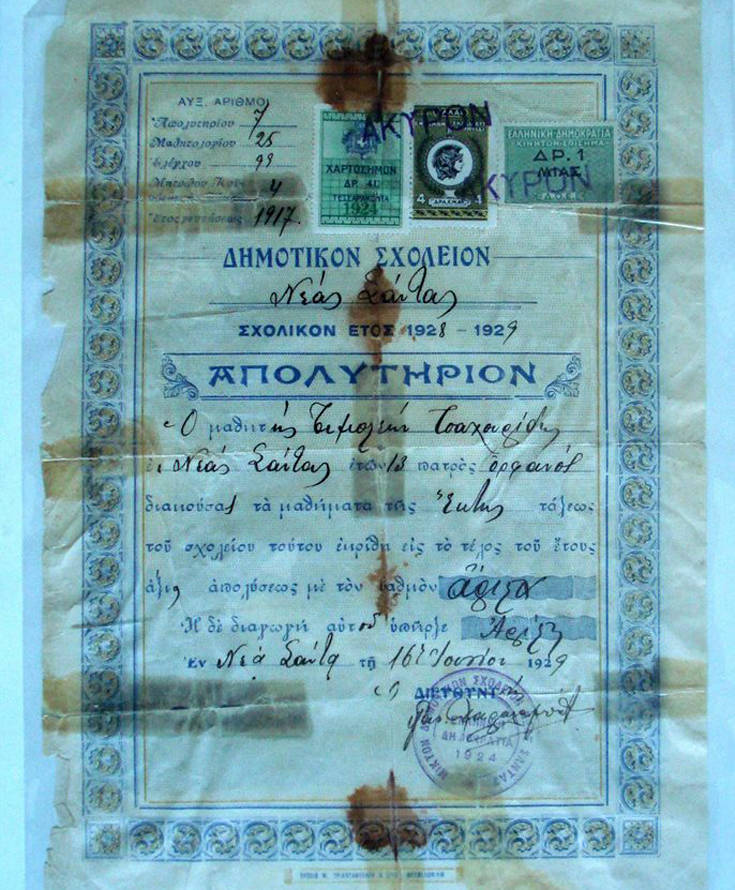 ΑΥΞ. ΑΡΙΘΜΟΙ
Ἀπολυτηρίου 7
Μαθητολογίου 25
Ἐλέγχου 99
4
Ἔτος γεννήσεως 1917.
ΧΑΡΤΟΣΗΜΟΝ
ΔΡ. 40
ΤΕΣΣΑΡΑΚΟΝΤΑ
ΑΚΥΡΟΝ
4 ΔΡΑΧΜΑΙ 4
ΕΛΛΗΝΙΚΗ ΔΗΜΟΚΡΑΤΙΑ
ΚΙΝΗΤΟΝ ΕΠΙΣΗΜΑ
ΔΡ. 1
ΜΙΑΣ
ΑΚΥΡΟΝ
ΔΗΜΟΤΙΚΟΝ ΣΧΟΛΕΙΟΝ
Νέας Σάντας
ΣΧΟΛΙΚΟΝ ΕΤΟΣ 1928 - 1929
ΑΠΟΛΥΤΗΡΙΟΝ
Ὁ μαθητὴς
ἐκ Νέας Σάντας ἐτῶν 13 πατρὸς ὀρφανός
διακούσας τὰ μαθήματα τῆς Ἕκτης τάξεως
τοῦ σχολείου τούτου ἐκρίθη εἰς τὸ τέλος τοῦ ἔτους
ἄξιος ἀπολύσεως μὲ τὸν βαθμὸν ἄριστα
Ἡ δὲ διαγωγὴ αὐτοῦ ὑπῆρξε
Ἐν Νέᾳ Σάντᾳ τῇ 16 Ἰουνίου 1929
Ὁ ΔΙΕΥΘΥΝΤΗΣ
ΜΙΚΤΟΝ ΔΗΜΟΤΙΚΟΝ ΣΧΟΛΕΙΟΝ ΣΑΝΤΑΣ
ΕΛΛΗΝΙΚΗ
ΔΗΜΟΚΡΑΤΙΑ
1924